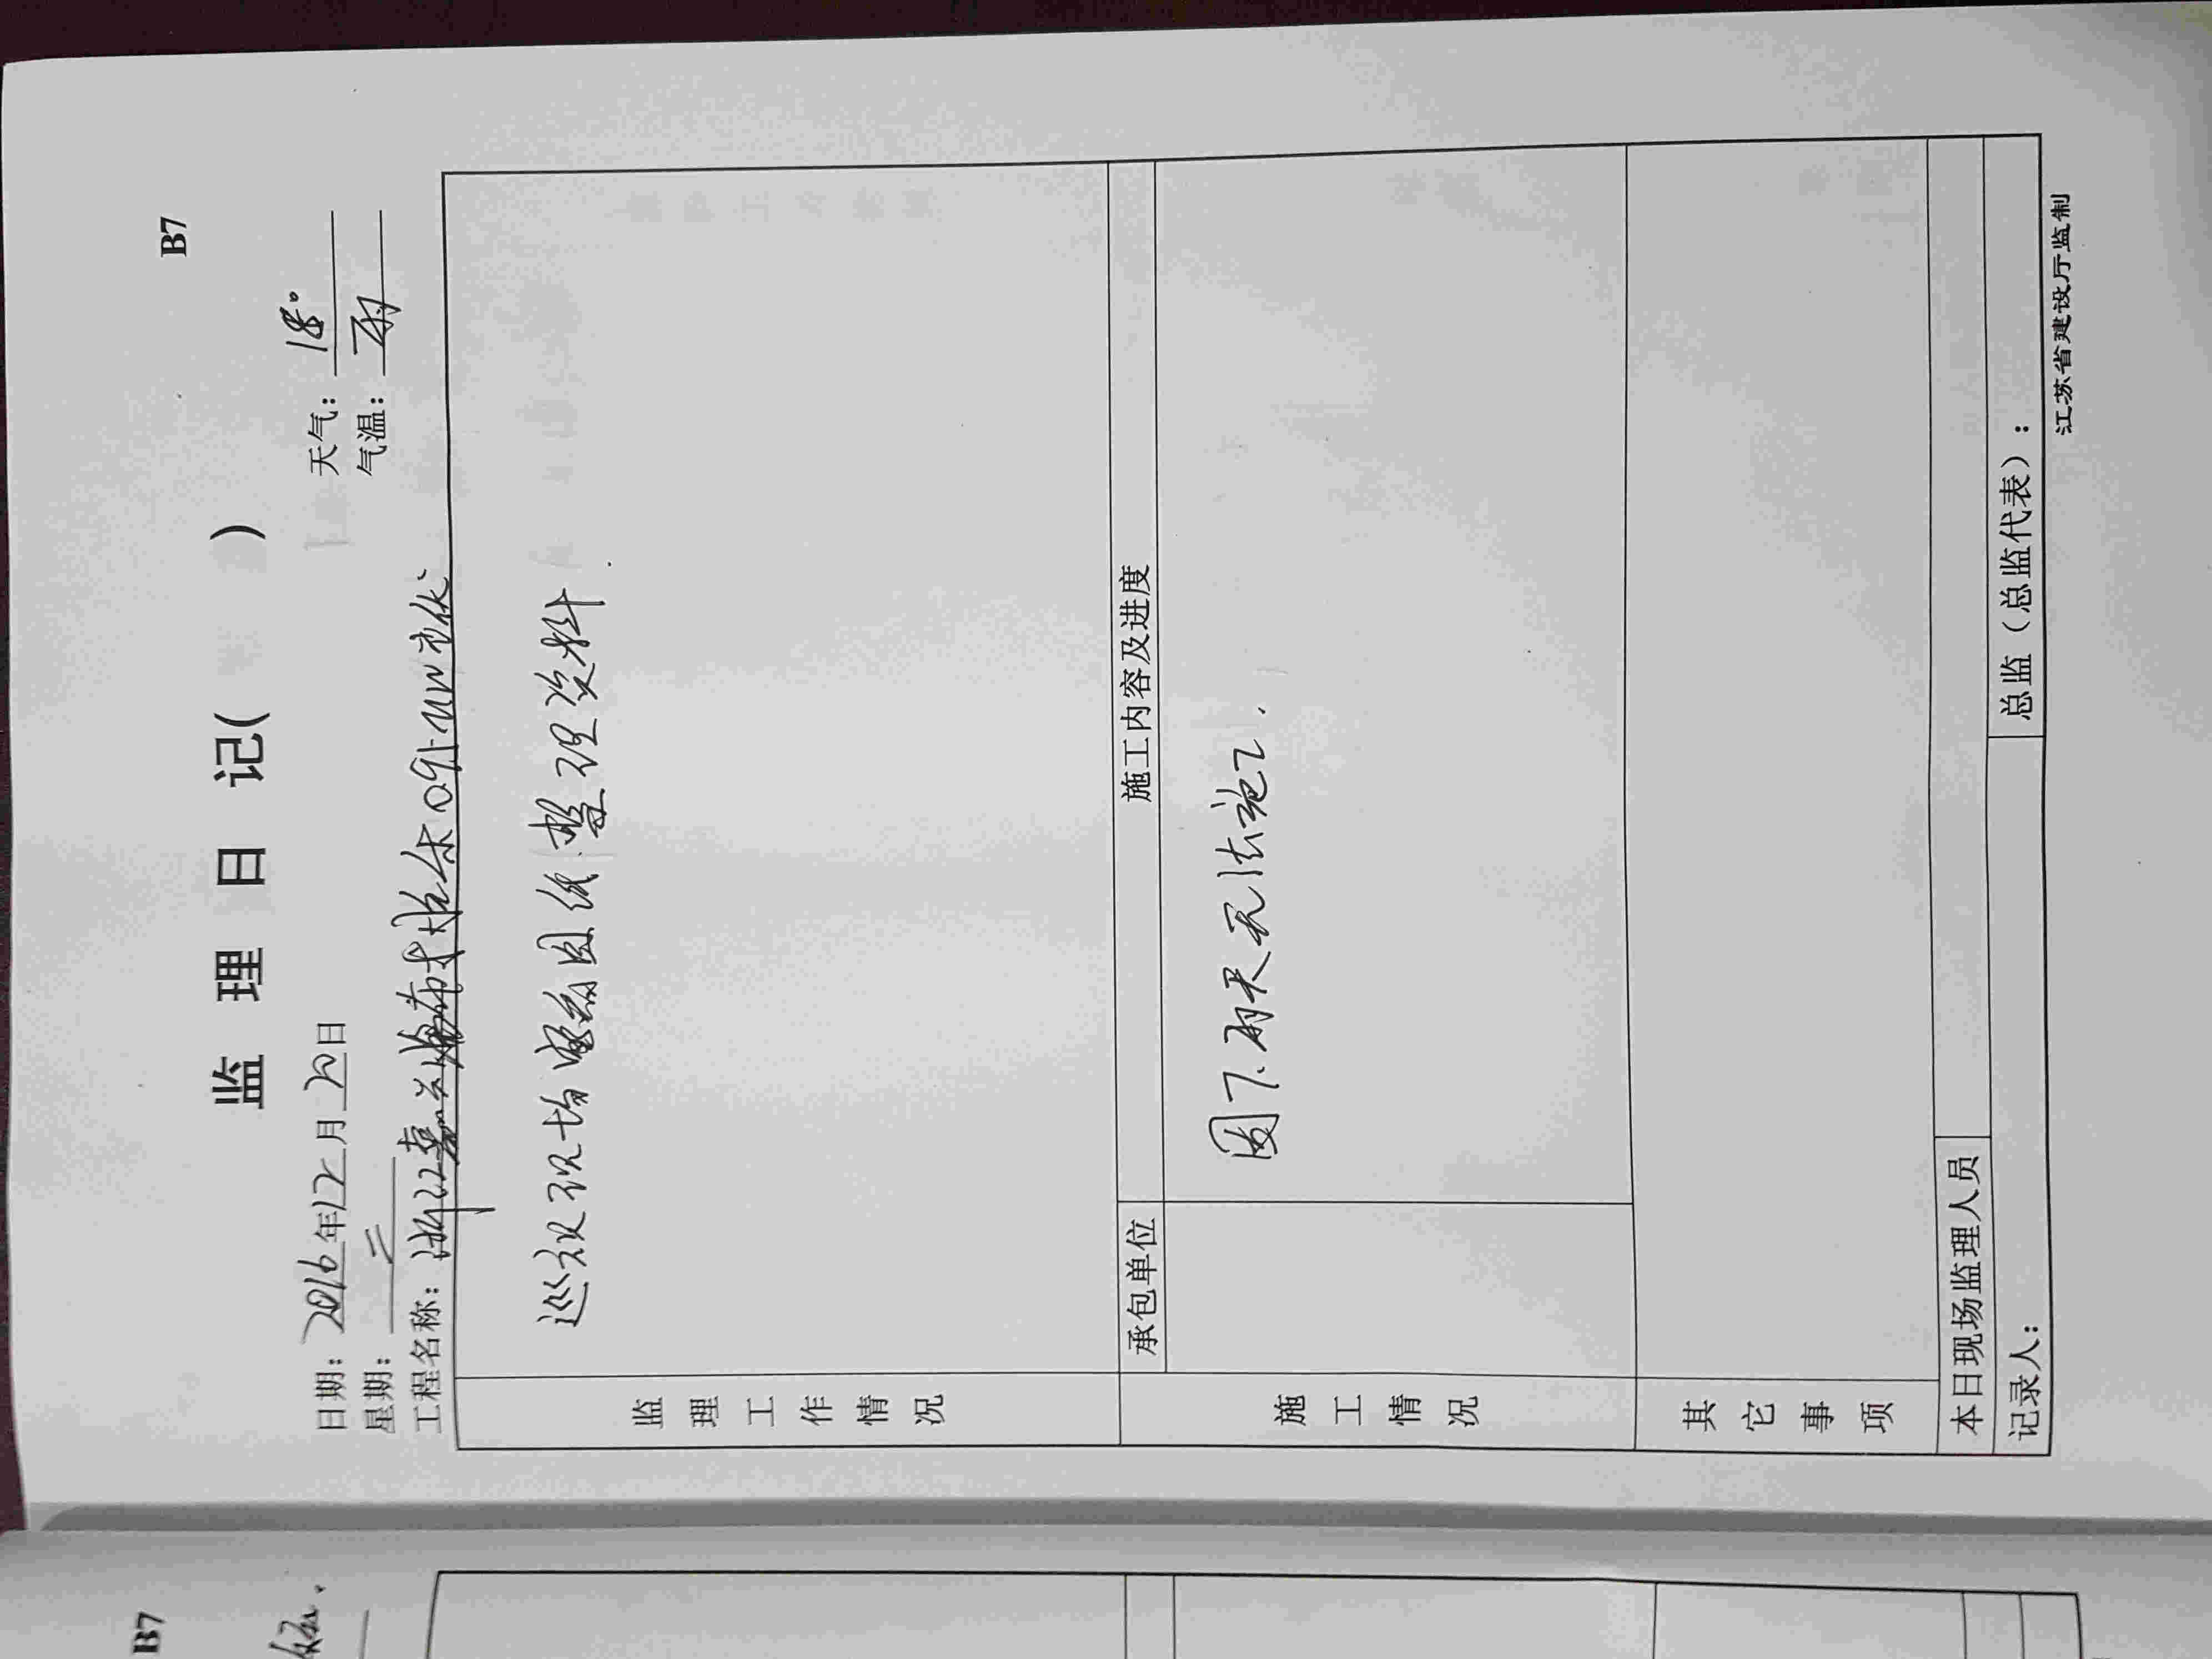 B7
监 理 日 记( )
日期: 2016年12月20日 天气: 18°
星期: 二 气温: 雨
工程名称: 浙江嘉兴海
巡视现场 图纸 整理资料.
监理工作情况
承包单位 施工内容及进度
因下雨天无法施工.
施工情况
其它事项
本日现场监理人员
记录人: 总监(总监代表):
江苏省建设厅监制
B7